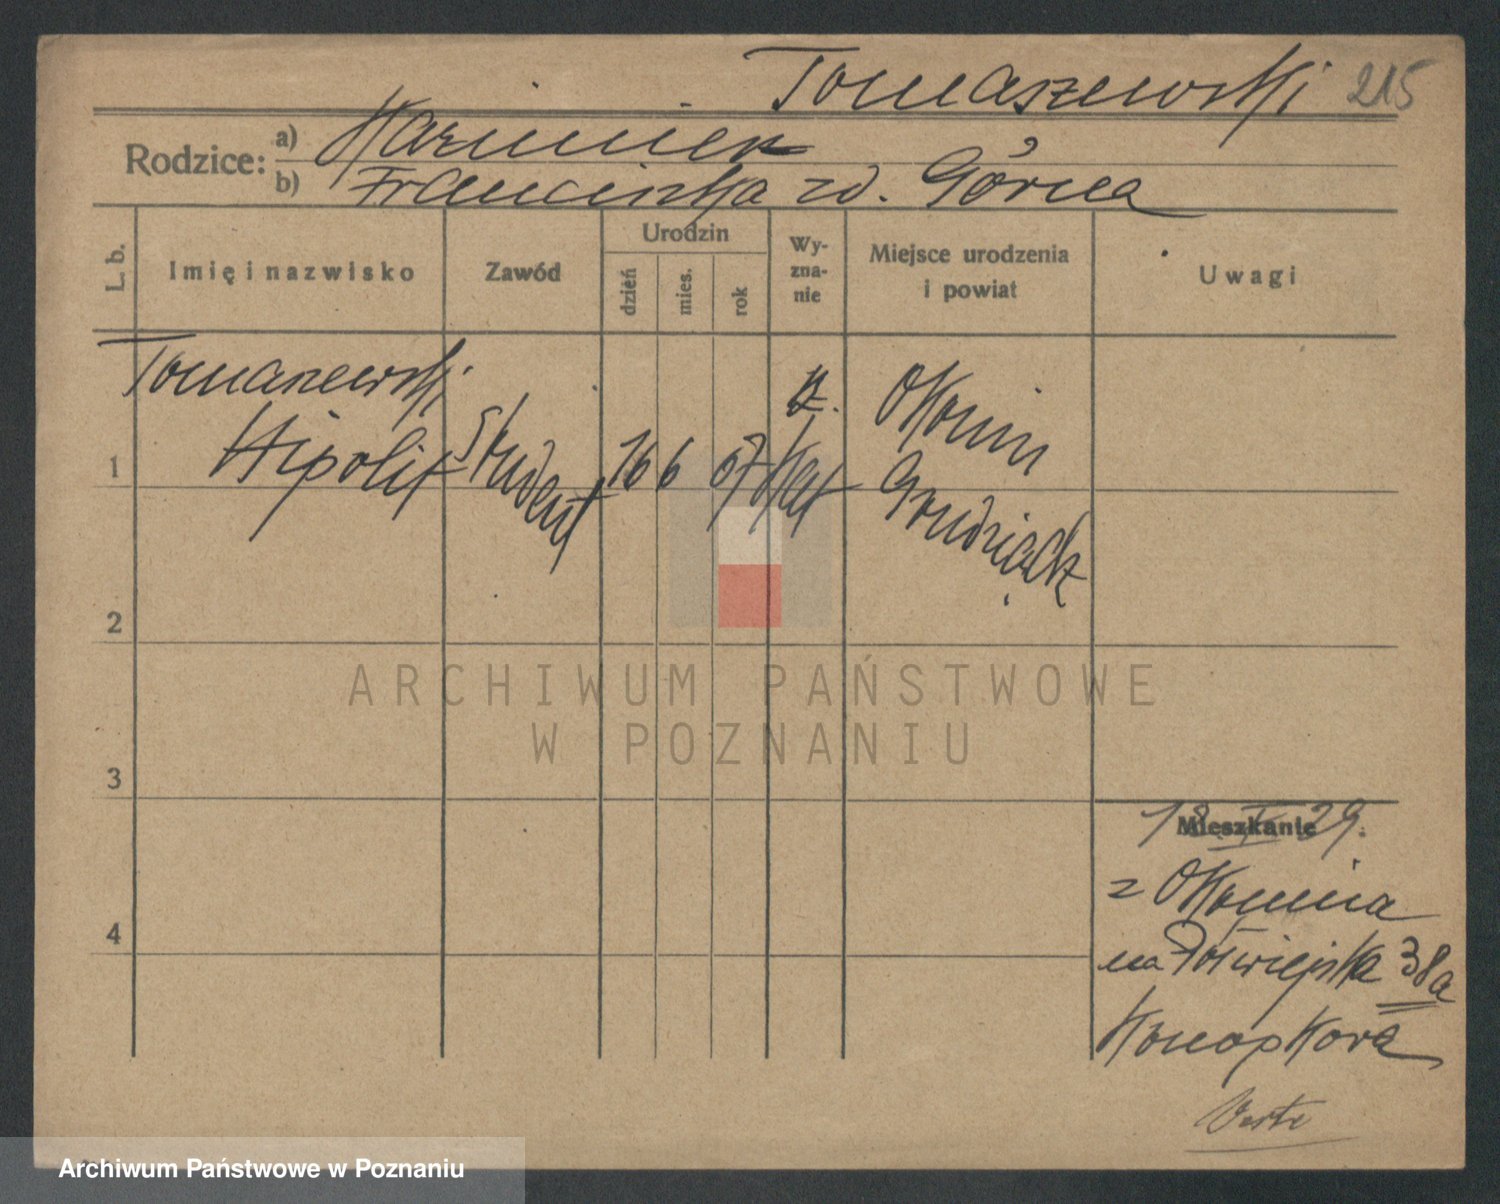 Tomaszewski 215
Rodzice:
a) Kazimierz
b) Franciszka zd. Górna
L. b.
Imię i nazwisko
Zawód
Urodzin
dzień
mies.
rok
Wy-
zna-
nie
Miejsce urodzenia
i powiat
Uwagi
1
Tomaszewski
Hipolit
Student
16 6 07
Kat
Okonin
Grudziądz
2
3
4
Mieszkanie
z Okonina
na Półwiejska 38a
Konopkova
Verte
ARCHIWUM PAŃSTWOWE
W POZNANIU
Archiwum Państwowe w Poznaniu